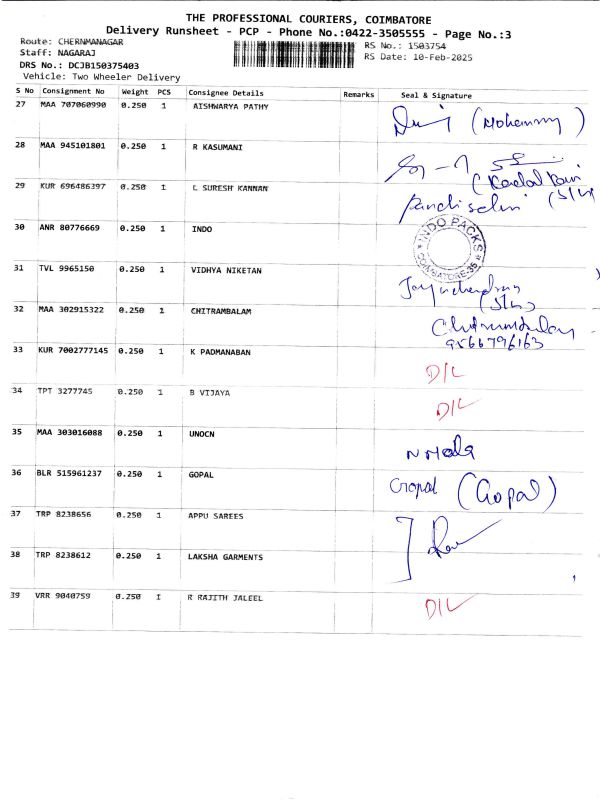 THE PROFESSIONAL COURIERS, COIMBATORE
Delivery Runsheet - PCP - Phone No.:0422-3505555 - Page No.:3
Route: CHERNMANAGAR
RS No.: 1503754
Staff: NAGARAJ
RS Date: 10-Feb-2025
DRS No.: DCJB150375403
Vehicle: Two Wheeler Delivery
S No Consignment No Weight PCS Consignee Details Remarks Seal & Signature
27 MAA 707060990 0.250 1 AISHWARYA PATHY
28 MAA 945101801 0.250 1 R KASUMANI
29 KUR 696486397 0.250 1 L SURESH KANNAN
30 ANR 80776669 0.250 1 INDO INDO PACKS COIMBATORE-35
31 TVL 9965150 0.250 1 VIDHYA NIKETAN
32 MAA 302915322 0.250 1 CHITRAMBALAM
9566796163
33 KUR 7002777145 0.250 1 K PADMANABAN D/L
34 TPT 3277745 0.250 1 B VIJAYA D/L
35 MAA 303016088 0.250 1 UNOCN
36 BLR 515961237 0.250 1 GOPAL Gopal (Gopal)
37 TRP 8238656 0.250 1 APPU SAREES
38 TRP 8238612 0.250 1 LAKSHA GARMENTS
39 VRR 9040759 0.250 1 R RAJITH JALEEL D/L